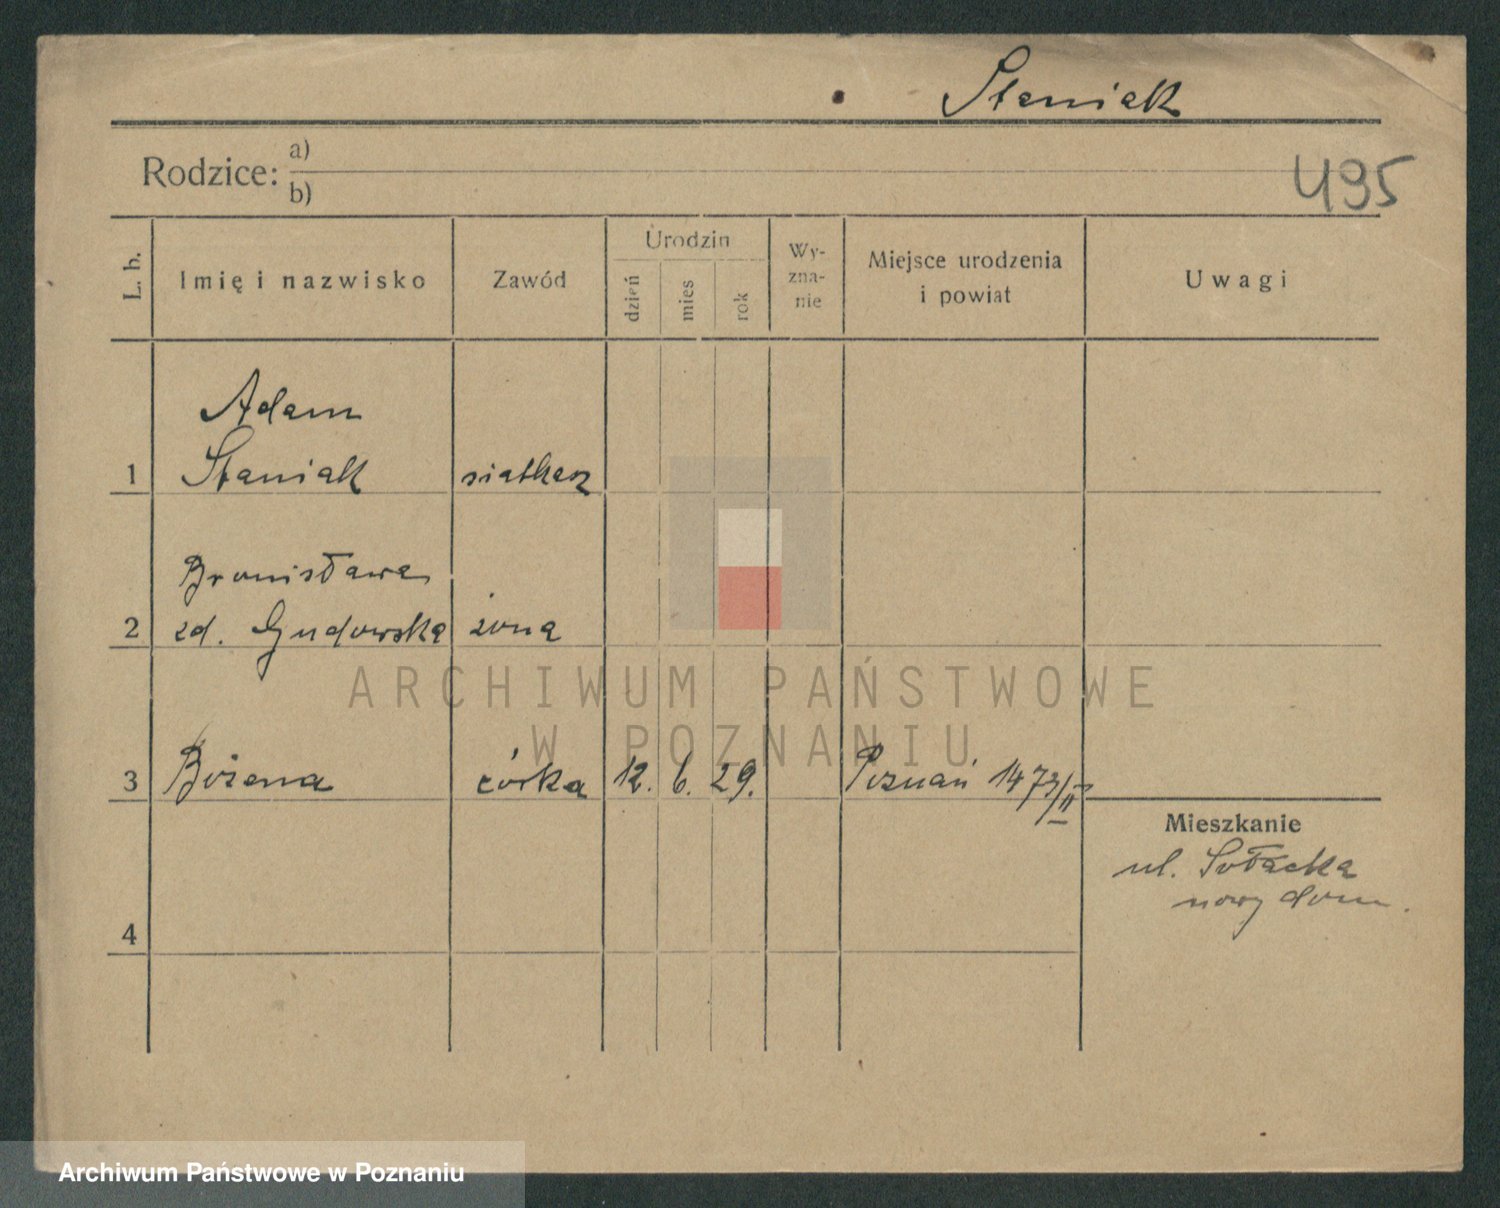 Staniak
Rodzice: a)
b)
495
L. b.
Imię i nazwisko
Zawód
Urodzin
dzień
mies
rok
Wy-
zna-
nie
Miejsce urodzenia
i powiat
Uwagi
Adam
1 Staniak siatkarz
Bronisława
2 zd. Gudowska żona
3 Bożena córka 12. 6. 29. Poznań 1473/II
Mieszkanie
ul. Sołacka
nowy dom.
4
ARCHIWUM PAŃSTWOWE
W POZNANIU
Archiwum Państwowe w Poznaniu